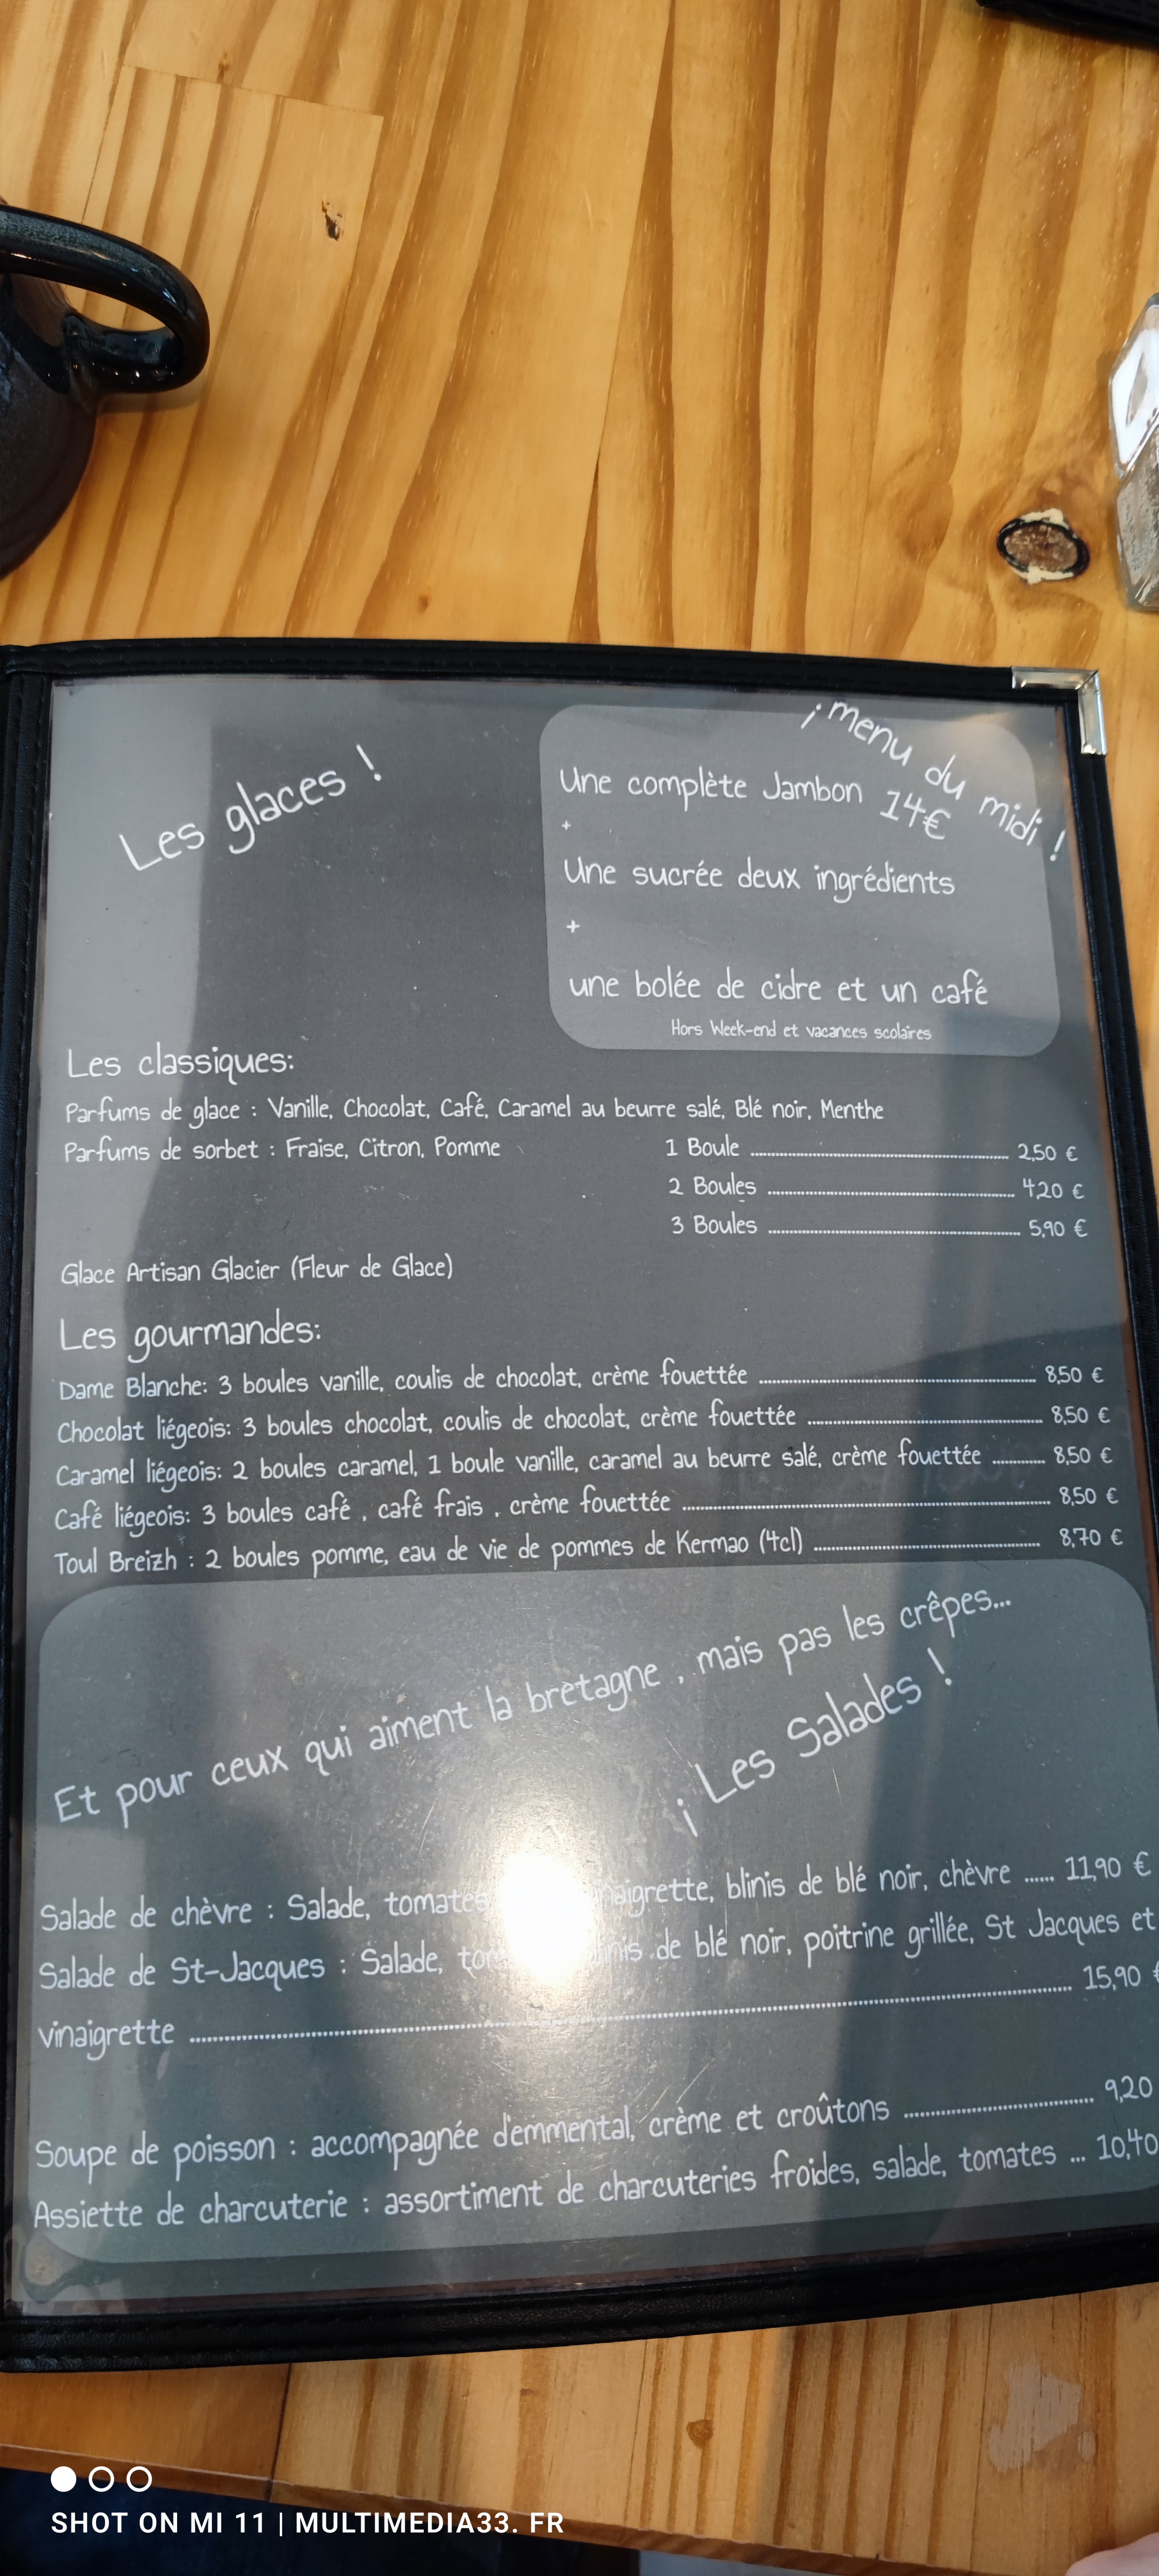 Les glaces !
¡ menu du midi !
Une complète Jambon 14€
+
Une sucrée deux ingrédients
+
une bolée de cidre et un café
Hors Week-end et vacances scolaires
Les classiques:
Parfums de glace : Vanille, Chocolat, Café, Caramel au beurre salé, Blé noir, Menthe
Parfums de sorbet : Fraise, Citron, Pomme
1 Boule 2,50 €
2 Boules 4,20 €
3 Boules 5,90 €
Glace Artisan Glacier (Fleur de Glace)
Les gourmandes:
Dame Blanche: 3 boules vanille, coulis de chocolat, crème fouettée 8,50 €
Chocolat liégeois: 3 boules chocolat, coulis de chocolat, crème fouettée 8,50 €
Caramel liégeois: 2 boules caramel, 1 boule vanille, caramel au beurre salé, crème fouettée 8,50 €
Café liégeois: 3 boules café , café frais , crème fouettée 8,50 €
Toul Breizh : 2 boules pomme, eau de vie de pommes de Kermao (4cl) 8,70 €
Et pour ceux qui aiment la bretagne , mais pas les crêpes...
¡ Les Salades !
Salade de chèvre : Salade, tomates vinaigrette, blinis de blé noir, chèvre ...... 11,90 €
Salade de St-Jacques : Salade, blinis de blé noir, poitrine grillée, St Jacques et
vinaigrette 15,90 €
Soupe de poisson : accompagnée d'emmental, crème et croûtons 9,20
Assiette de charcuterie : assortiment de charcuteries froides, salade, tomates ... 10,40
SHOT ON MI 11 | MULTIMEDIA33. FR